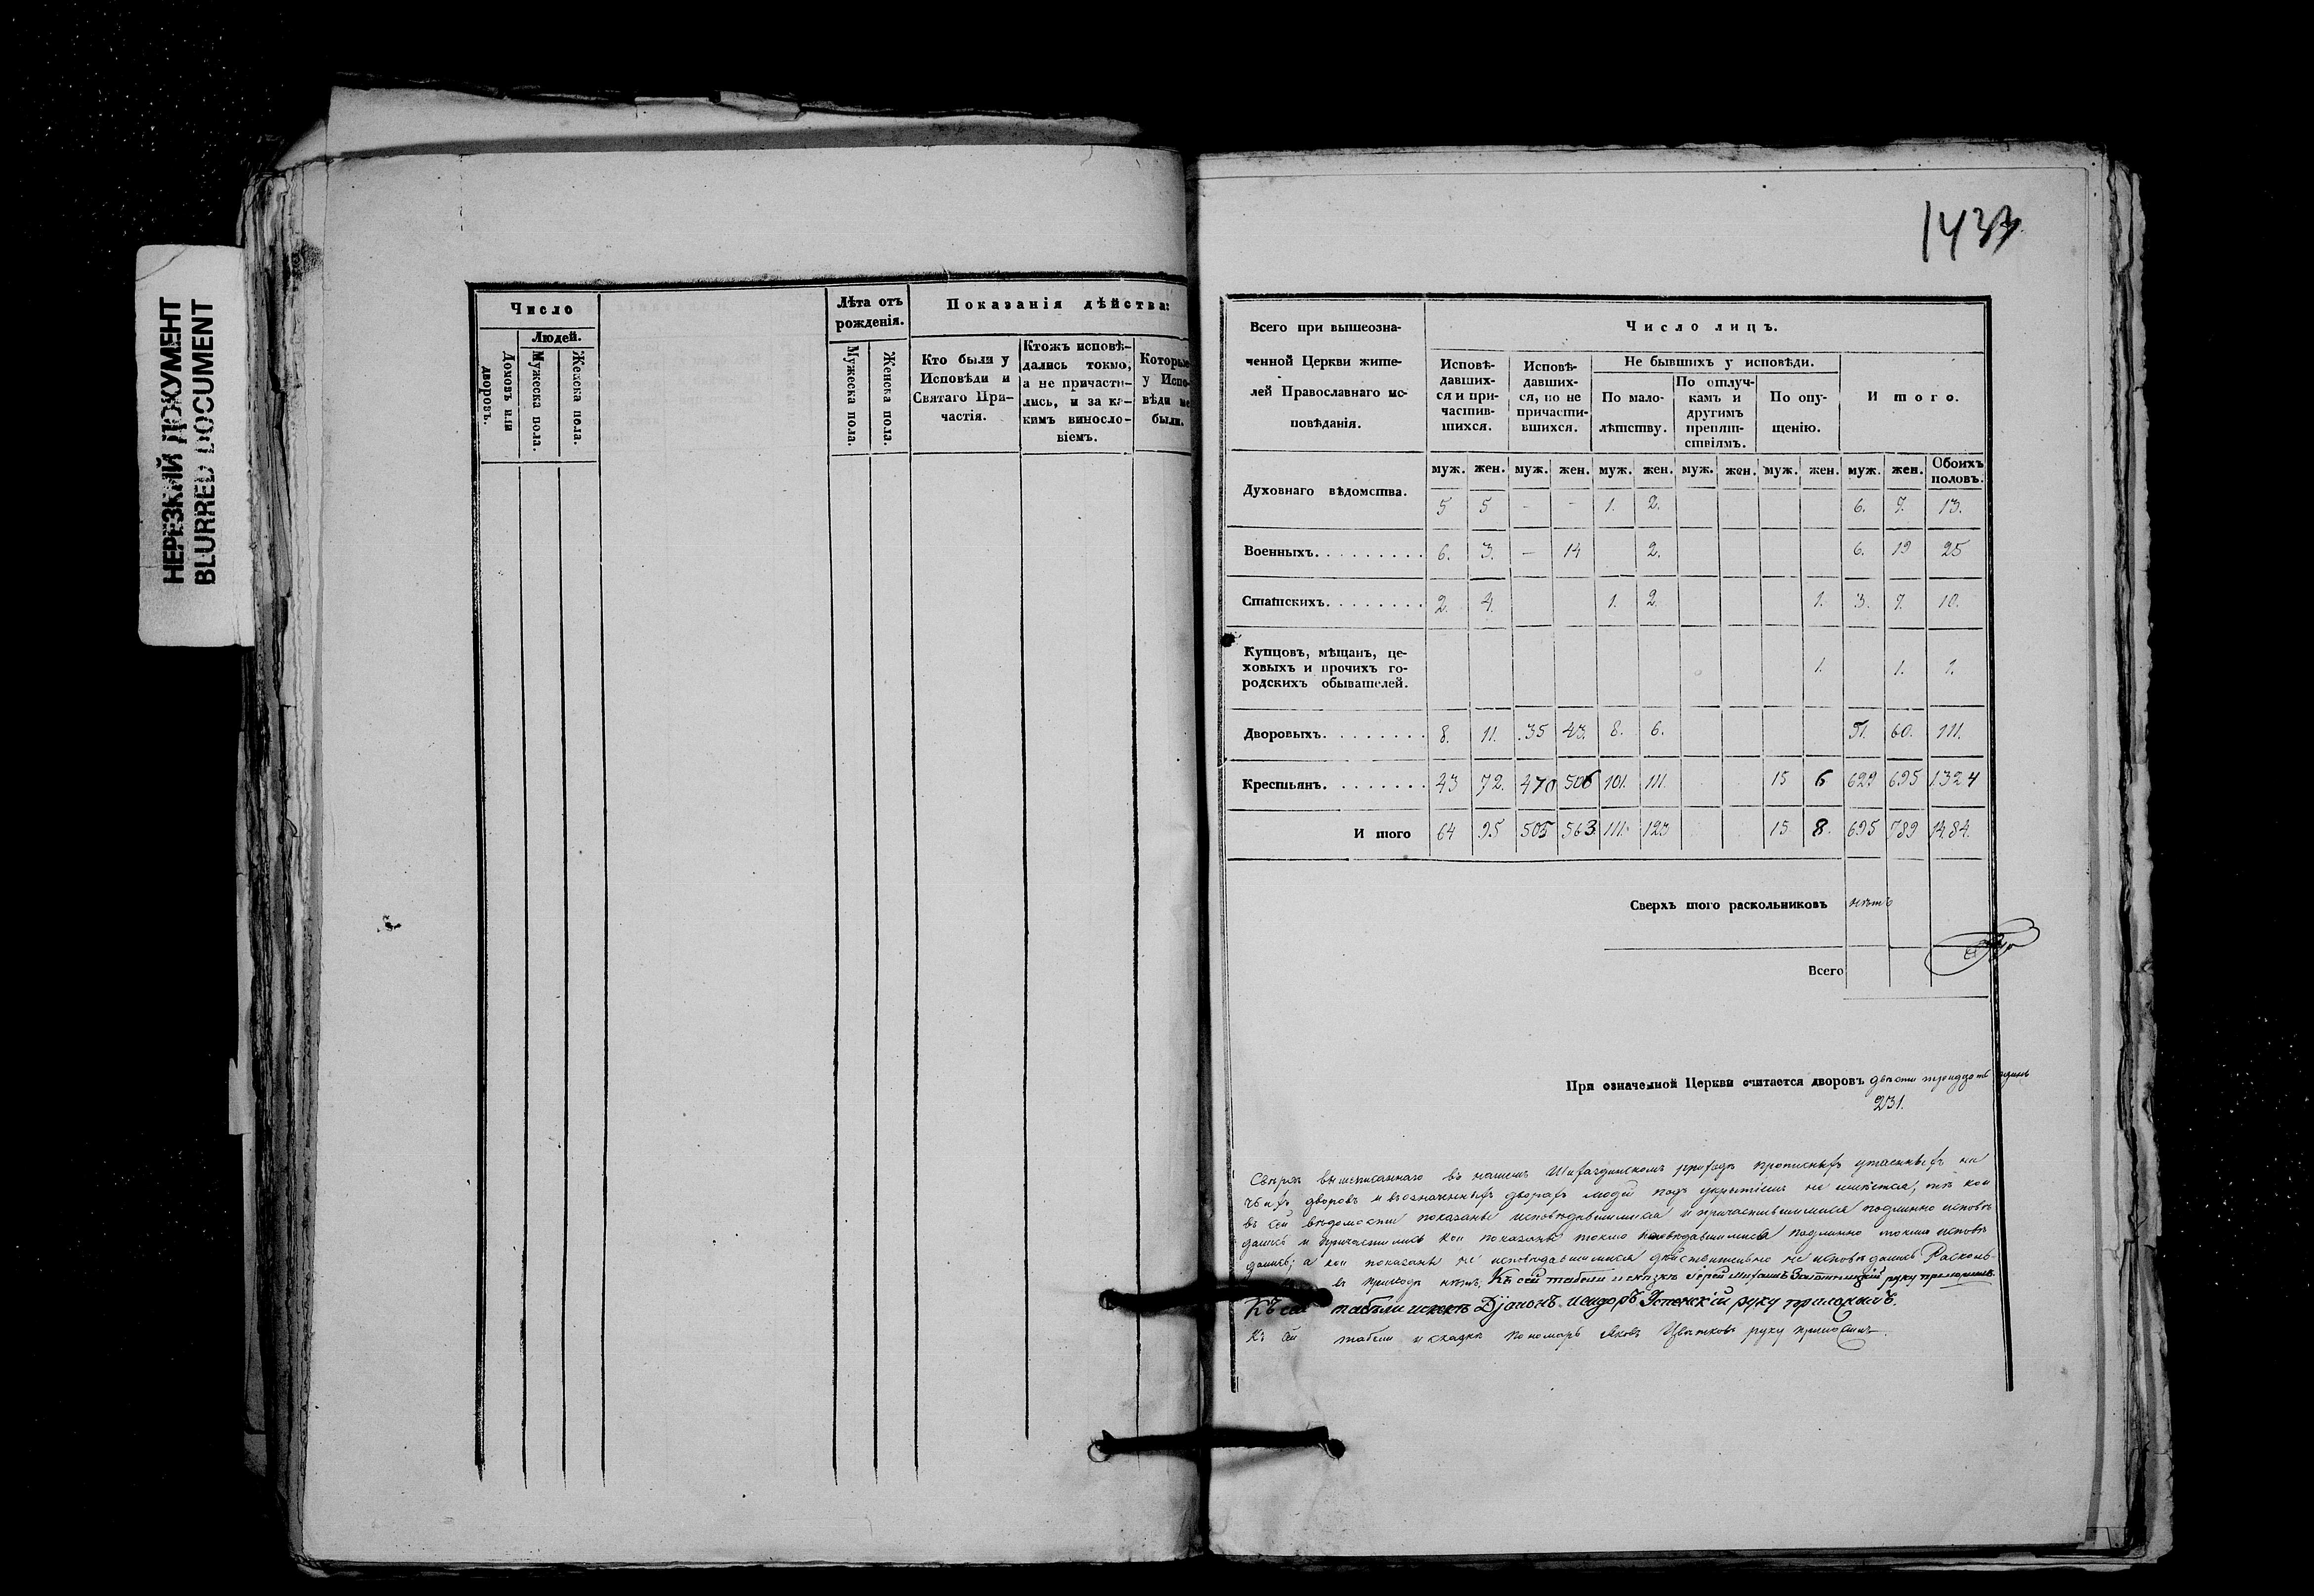 НЕРЕЗКИЙ ДОКУМЕНТ
BLURRED DOCUMENT
Число
Людей.
Домовъ или дворовъ.
Мужеска пола.
Женска пола.
Лѣта отъ рожденія.
Мужеска пола.
Женска пола.
Показанія дѣйства:
Кто были у
Исповѣди и
Святаго При-
частія.
Ктожъ исповѣ-
дались токмо,
а не причасти-
лись, и за ка-
кимъ винносло-
віемъ.
Которые
у Испо-
вѣди не
были.
1433
Всего при вышеозна-
ченной Церкви жите-
лей Православнаго ис-
повѣданія.
Число лицъ.
Исповѣ-
давших-
ся и при-
частив-
шихся.
Исповѣ-
давших-
ся, но не
причасти-
вшихся.
Не бывшихъ у исповѣди.
По мало-
лѣтству.
По отлуч-
камъ и
другимъ
препят-
ствіямъ.
По опу-
щенію.
Итого.
муж. жен. муж. жен. муж. жен. муж. жен. муж. жен. муж. жен. Обоихъ половъ.
Духовнаго вѣдомства. 5 5 - - 1. 2. 6. 7. 13.
Военныхъ. 6. 3. — 14 2. 6. 19 25
Статскихъ. 2. 4. 1. 2. 1. 3. 7. 10.
Купцовъ, мѣщанъ, це-
ховыхъ и прочихъ го-
родскихъ обывателей. 1. 1. 1.
Дворовыхъ. 8. 11. 35 43. 8. 6. 51. 60. 111.
Крестьянъ. 43 72. 470 506 101. 111. 15 6 629 695 1324
Итого 64 95 505 563 111. 123 15 8. 695 789 1484.
Сверхъ того раскольниковъ нѣтъ
Всего
При означенной Церкви считается дворовъ двѣсти тридцать одинъ
231.
Сверхъ вышеписаннаго въ нашемъ приходѣ прописныхъ утаенныхъ ни
чьихъ дворовъ и въ означенныхъ дворахъ людей подъ укрытіемъ не имѣется, тѣ кои
въ сей вѣдомости показаны исповѣдавшимися и причастившимися подлинно исповѣ
дались и причастились кои показаны токмо исповѣдавшимися подлинно токмо исповѣ
дались; а кои показаны не исповѣдавшимися дѣйствительно не исповѣдались Расколь-
въ приходѣ нѣтъ. Къ сей табели и сказкѣ Іерей Михаилъ руку приложилъ.
Къ сей табели Діаконъ Исидоръ Успенскій руку приложилъ.
Къ сей табели и сказкѣ пономарь Яковъ Цвѣтковъ руку приложилъ.